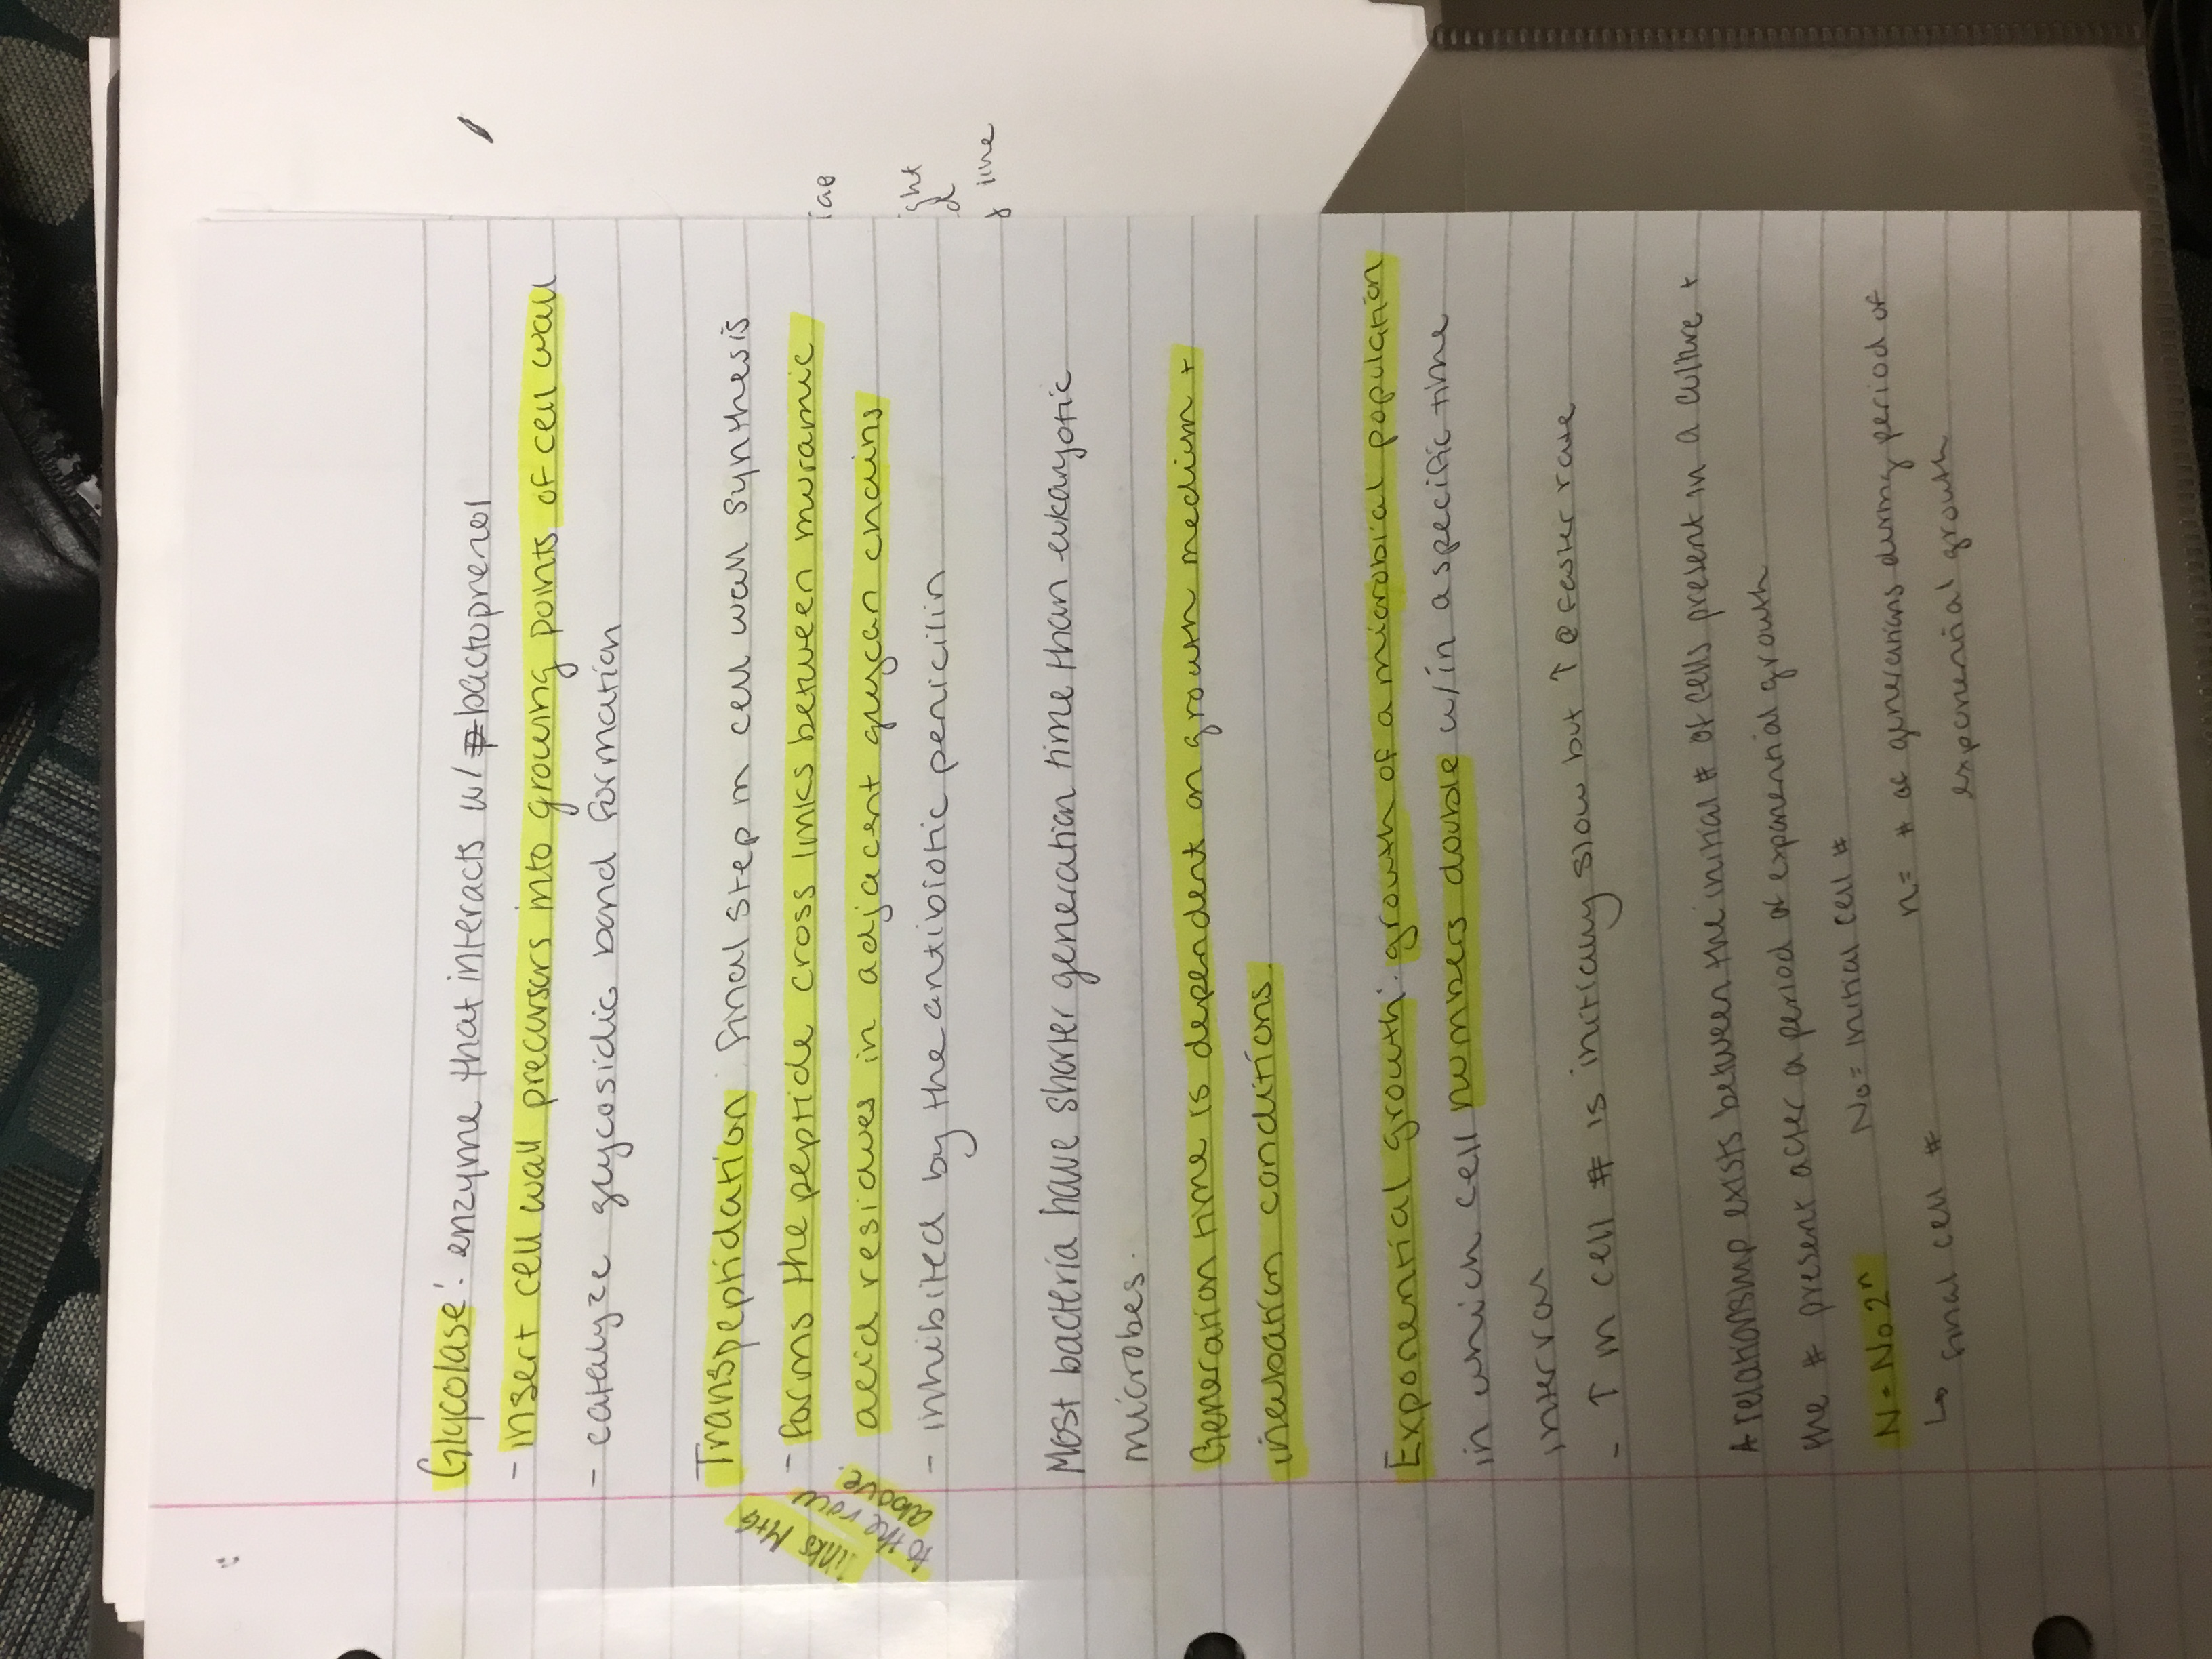 Glycolase: enzyme that interacts w/ bactoprenol
- insert cell wall precursors into growing points of cell wall
- catalyze glycosidic bond formation
Transpeptidation: final step in cell wall synthesis
- forms the peptide cross links between muramic
acid residues in adjacent glycan chains
- inhibited by the antibiotic penicilin
links M+G
to the row
above.
Most bacteria have shorter generation time than eukaryotic
microbes.
Generation time is dependent on growth medium +
incubation conditions
Exponential growth: growth of a microbial population
in which cell numbers double w/in a specific time
interval
- ↑ in cell # is initially slow but ↑ @ faster rate
A relationship exists between the initial # of cells present in a culture +
the # present after a period of exponential growth
N = No2ⁿ No = initial cell # n = # of generations during period of
↳ final cell # exponential growth
ight
time